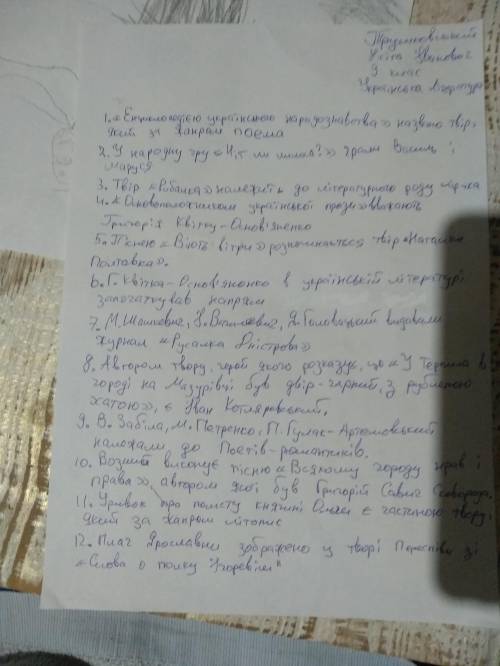 Українська література
9 клас
1. «Енциклопедією українського народознавства» названо твір,
який за жанром поема
2. У народну гру «Чіт чи лишка?» грали Василь і
Маруся
3. Твір «Рибалка» належить до літературного роду лірика
4. «Основоположником української прози» вважають
Григорія Квітку-Основ'яненко
5. Піснею «Віють вітри» розпочинається твір «Наталка
Полтавка».
6. Г. Квітка-Основ'яненко в українській літературі
започаткував напрям
7. М. Шашкевич, І. Вагилевич, Я. Головацький видавали
журнал «Русалка Дністрова»
8. Автором твору, герой якого розказує, що «У Терпила в
городі на Мазурівці був двір-чорний, з рубленою
хатою», є Іван Котляревський.
9. В. Забіла, М. Петренко, П. Гулак-Артемовський
належали до Поетів-романтиків.
10. Возний виконує пісню «Всякому городу нрав і
права», автором якої був Григорій Савич Сковорода.
11. Уривок про помсту княгині Ольги є частиною твору,
який за жанром літопис
12. Плач Ярославни зображено у творі Переспіви зі
«Слова о полку Ігоревім"